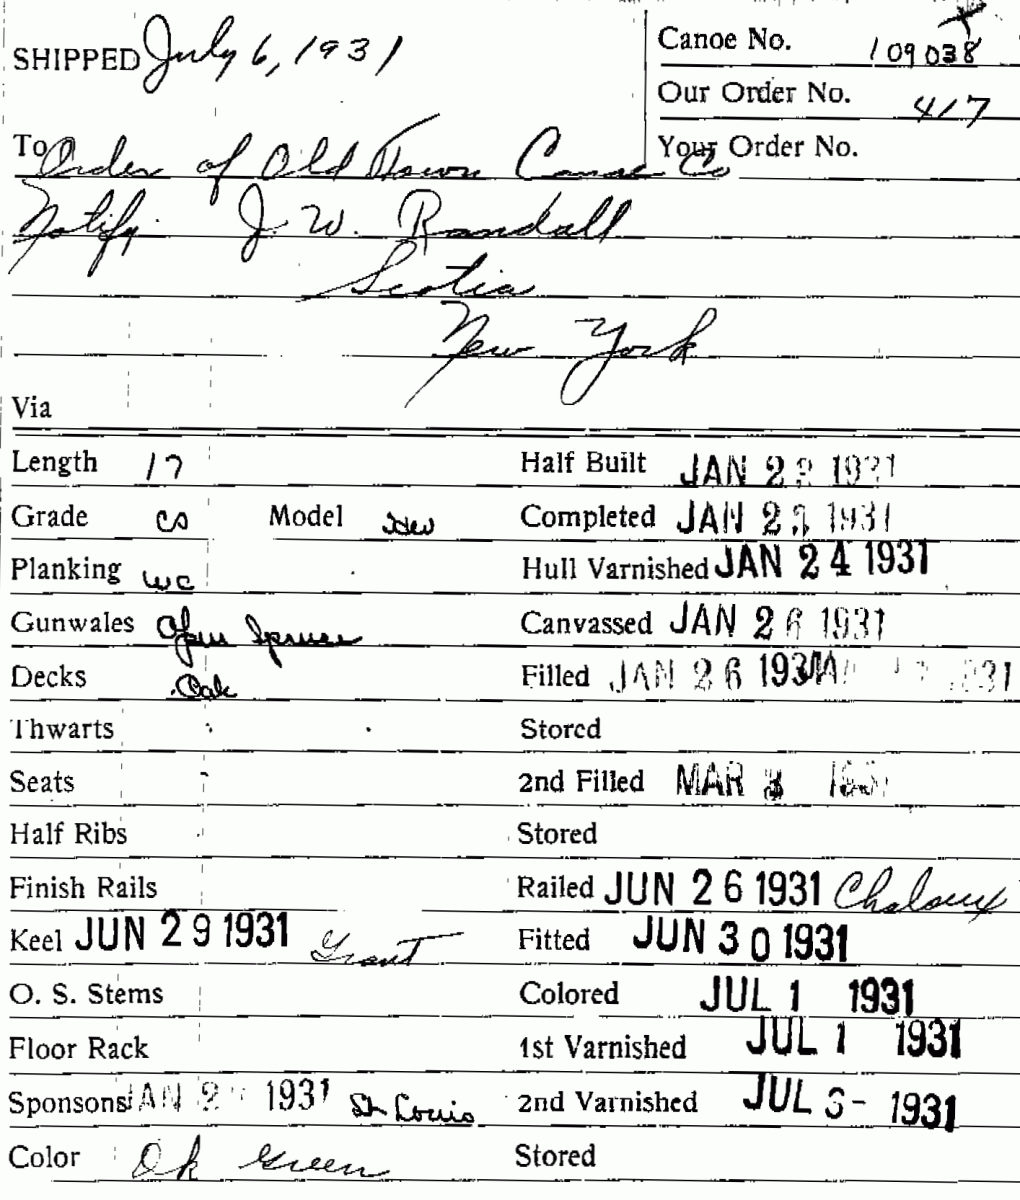 SHIPPED July 6, 1931
Canoe No. 109038
Our Order No. 417
To Order of Old Town Canoe Co
Your Order No.
Notify. J. W. Randall
Scotia
New York
Via
Length 17 Half Built JAN 2 1931
Grade CS Model HW Completed JAN 2 1931
Planking WC Hull Varnished JAN 24 1931
Gunwales Open Spruce Canvassed JAN 26 1931
Decks Oak Filled JAN 26 1931 MAR 1931
Thwarts Stored
Seats 2nd Filled MAR 3 1931
Half Ribs Stored
Finish Rails Railed JUN 26 1931 Chaloux
Keel JUN 29 1931 Grant Fitted JUN 30 1931
O. S. Stems Colored JUL 1 1931
Floor Rack 1st Varnished JUL 1 1931
Sponsons JAN 2 1931 St Louis 2nd Varnished JUL 3- 1931
Color Dk Green Stored